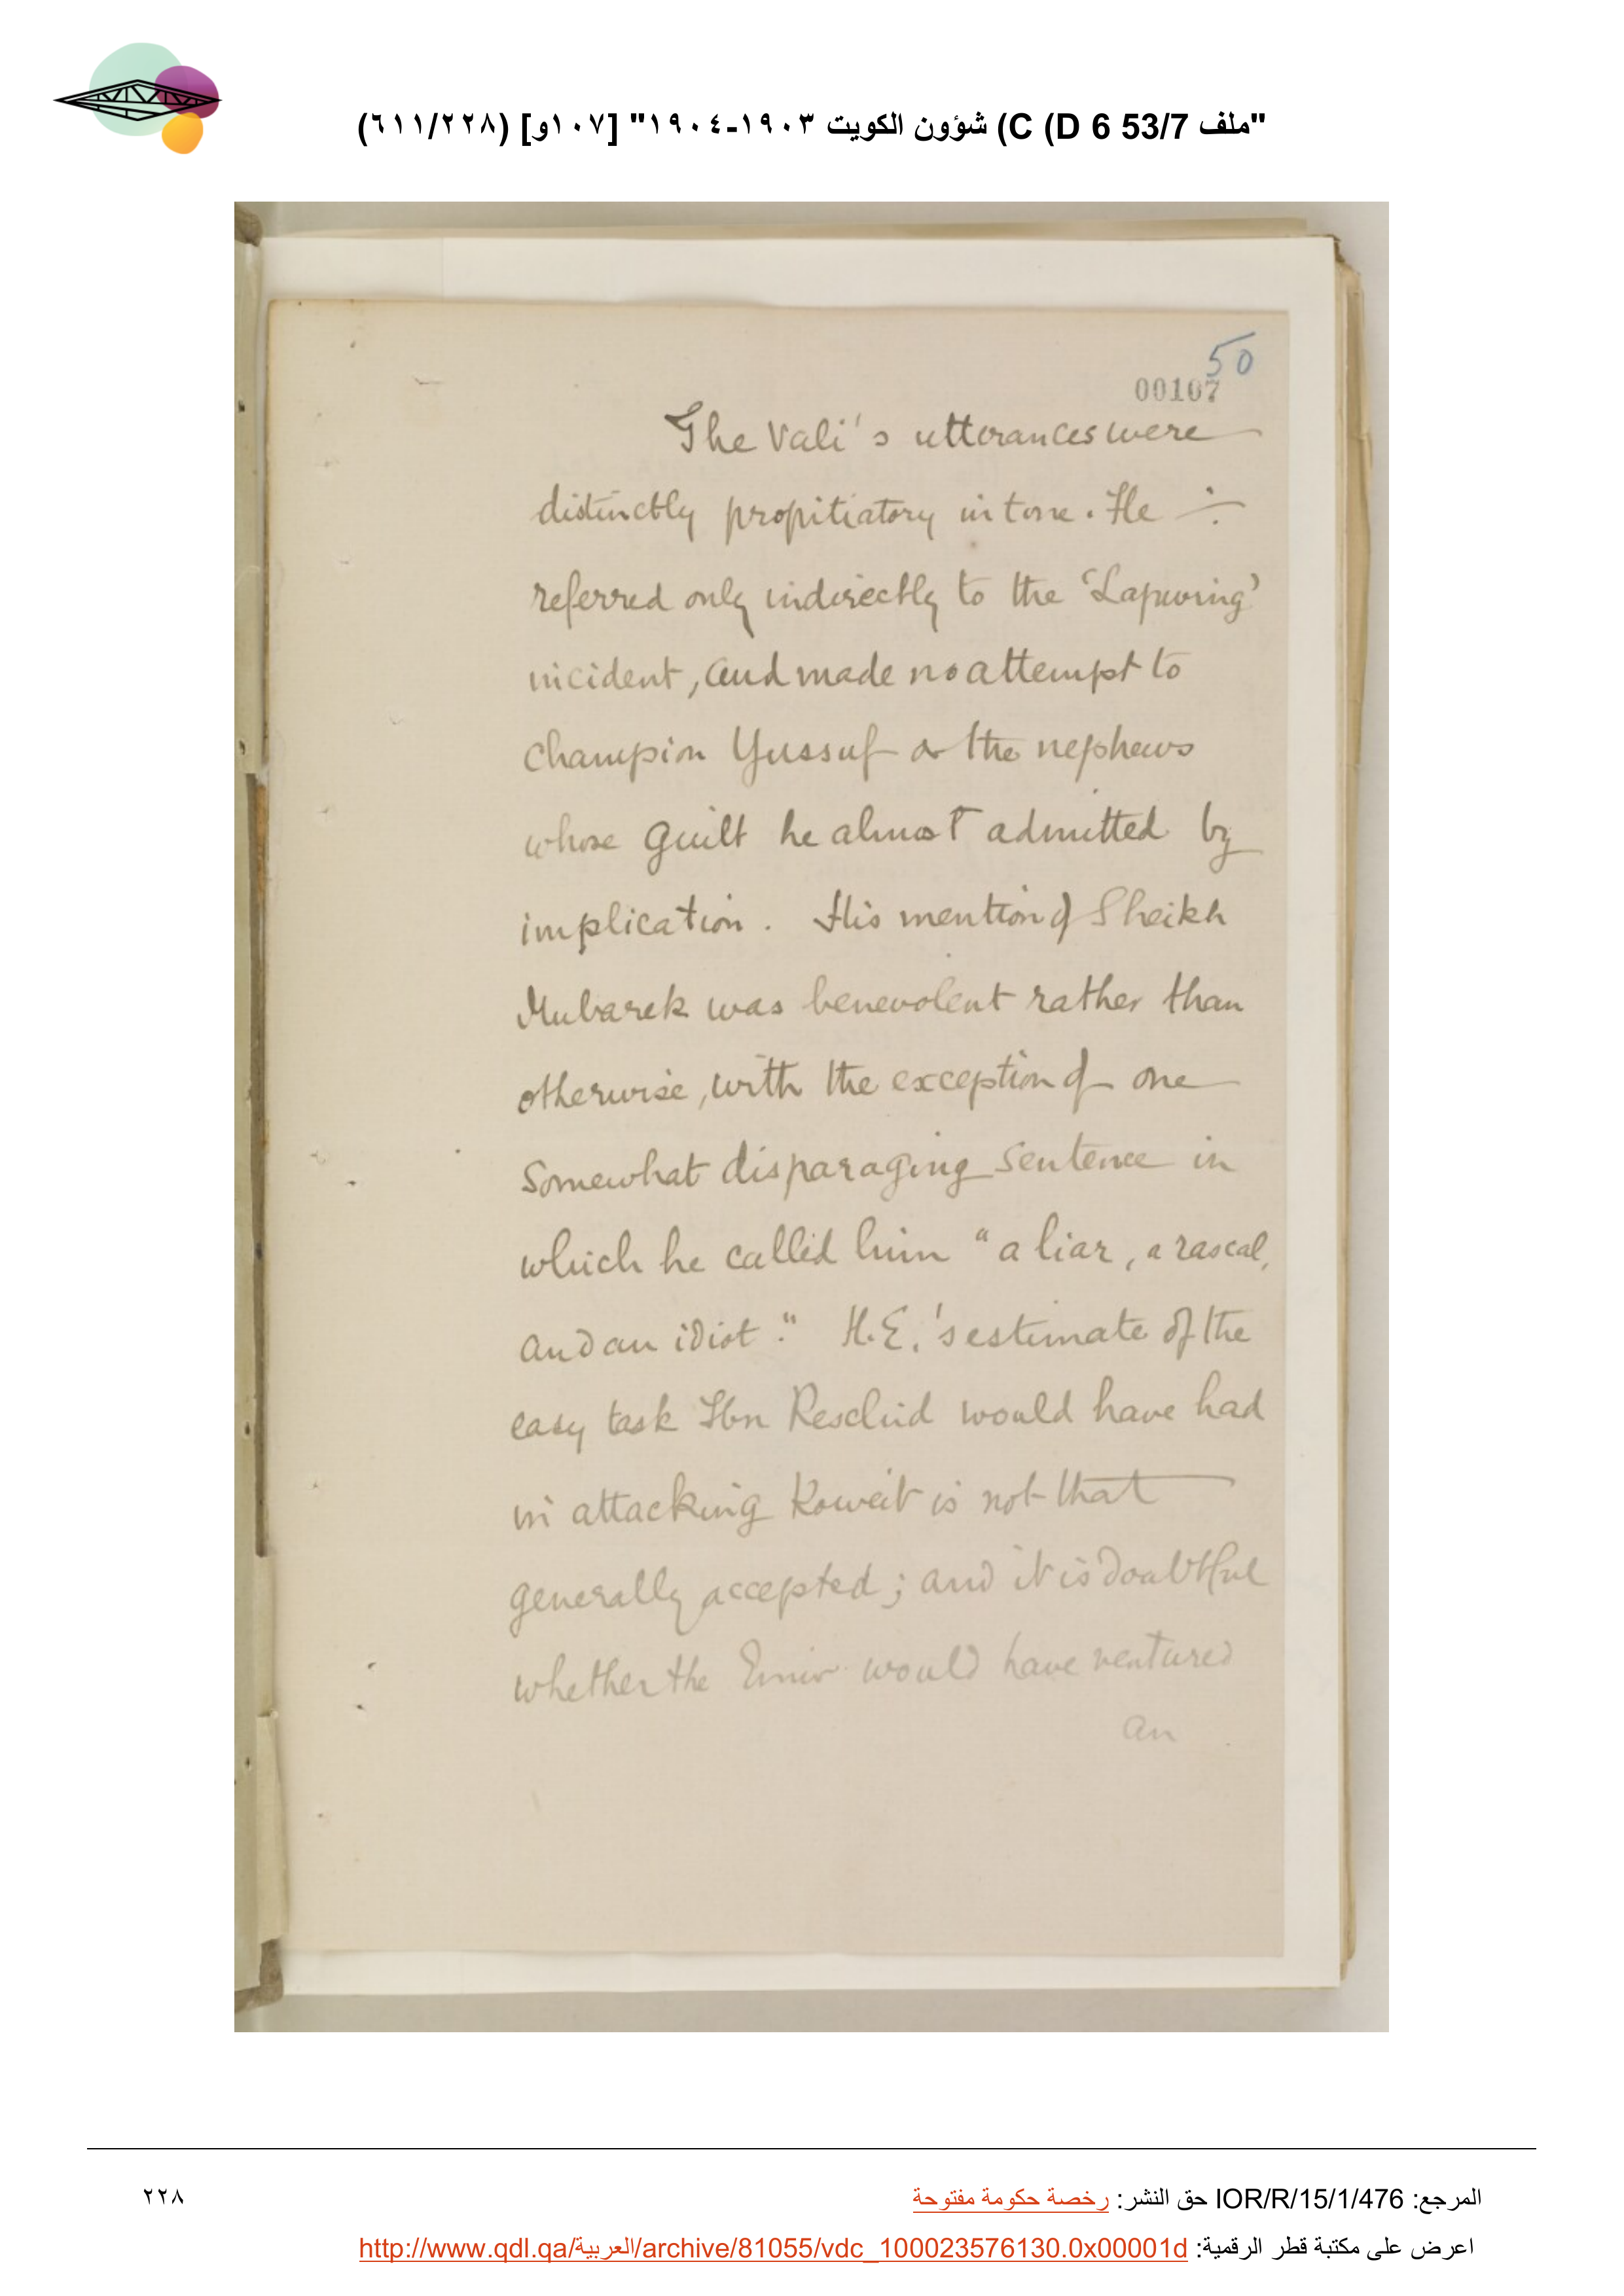 "ملف 53/7 C (D 6) شؤون الكويت ١٩٠٣-١٩٠٤" [١٠٧و] (٦١١/٢٢٨)
50
00107
The Vali's utterances were
distinctly propitiatory in tone. He
referred only indirectly to the 'Lapwing'
incident, and made no attempt to
champion Yussuf or the nephews
whose guilt he almost admitted by
implication. His mention of Sheikh
Mubarek was benevolent rather than
otherwise, with the exception of one
somewhat disparaging sentence in
which he called him "a liar, a rascal,
and an idiot." H.E.'s estimate of the
easy task Ibn Reschid would have had
in attacking Koweit is not that
generally accepted; and it is doubtful
whether the Emir would have ventured
an
المرجع: IOR/R/15/1/476 حق النشر: رخصة حكومة مفتوحة
٢٢٨
اعرض على مكتبة قطر الرقمية: http://www.qdl.qa/العربية/archive/81055/vdc_100023576130.0x00001d